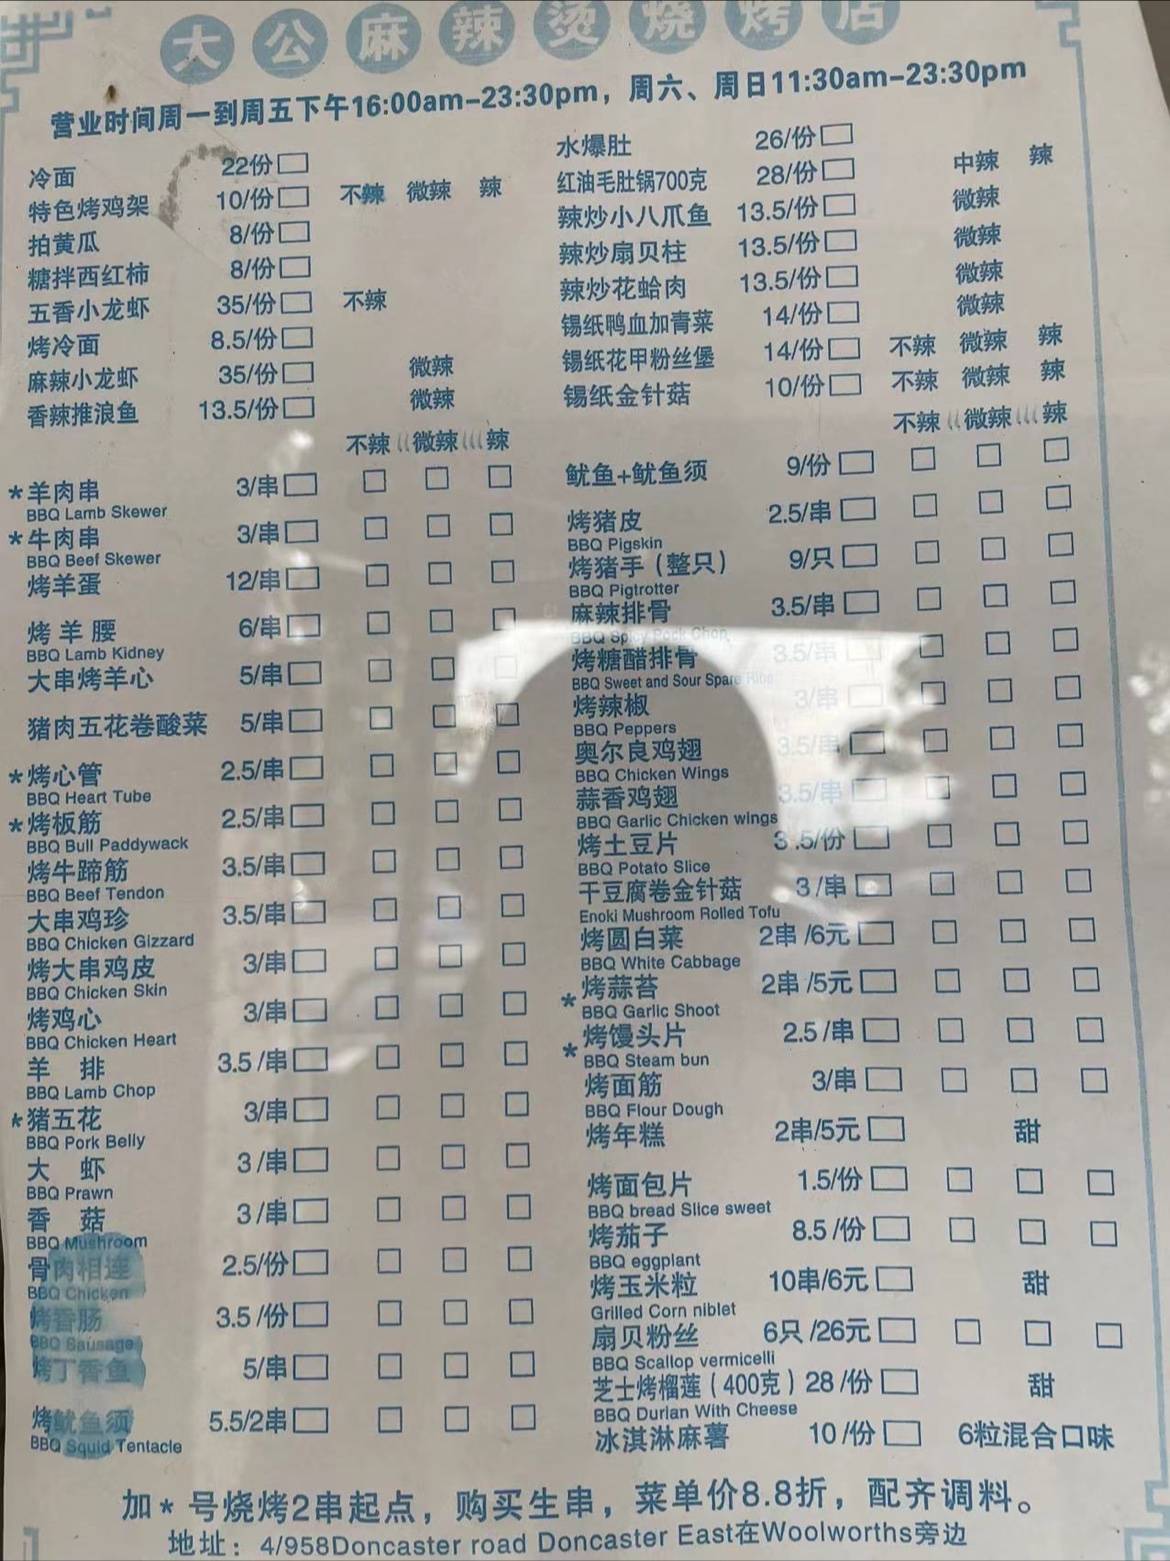 大公麻辣烫烧烤店
营业时间周一到周五下午16:00am-23:30pm，周六、周日11:30am-23:30pm
冷面 22份
特色烤鸡架 10/份 不辣 微辣 辣
拍黄瓜 8/份
糖拌西红柿 8/份
五香小龙虾 35/份 不辣
烤冷面 8.5/份
麻辣小龙虾 35/份 微辣
香辣推浪鱼 13.5/份 微辣
不辣 微辣 辣
*羊肉串 3/串
BBQ Lamb Skewer
*牛肉串 3/串
BBQ Beef Skewer
烤羊蛋 12/串
烤羊腰 6/串
BBQ Lamb Kidney
大串烤羊心 5/串
猪肉五花卷酸菜 5/串
*烤心管 2.5/串
BBQ Heart Tube
*烤板筋 2.5/串
BBQ Bull Paddywack
烤牛蹄筋 3.5/串
BBQ Beef Tendon
大串鸡珍 3.5/串
BBQ Chicken Gizzard
烤大串鸡皮 3/串
BBQ Chicken Skin
烤鸡心 3/串
BBQ Chicken Heart
羊 排 3.5 /串
BBQ Lamb Chop
*猪五花 3/串
BBQ Pork Belly
大 虾 3 /串
BBQ Prawn
香 菇 3 /串
BBQ Mushroom
骨肉相连 2.5/份
BBQ Chicken
烤香肠 3.5 /份
BBQ Sausage
烤丁香鱼 5/串
烤鱿鱼须 5.5/2串
BBQ Squid Tentacle
水爆肚 26/份
红油毛肚锅700克 28/份 中辣 辣
辣炒小八爪鱼 13.5/份 微辣
辣炒扇贝柱 13.5/份 微辣
辣炒花蛤肉 13.5/份 微辣
锡纸鸭血加青菜 14/份 微辣
锡纸花甲粉丝堡 14/份 不辣 微辣 辣
锡纸金针菇 10/份 不辣 微辣 辣
不辣 微辣 辣
鱿鱼+鱿鱼须 9/份
烤猪皮 2.5/串
BBQ Pigskin
烤猪手（整只） 9/只
BBQ Pigtrotter
麻辣排骨 3.5/串
BBQ Spicy Pock Chop
烤糖醋排骨 3.5/串
BBQ Sweet and Sour Spare Ribs
烤辣椒 3/串
BBQ Peppers
奥尔良鸡翅 3.5/串
BBQ Chicken Wings
蒜香鸡翅 3.5/串
BBQ Garlic Chicken wings
烤土豆片 3.5/份
BBQ Potato Slice
干豆腐卷金针菇 3 /串
Enoki Mushroom Rolled Tofu
烤圆白菜 2串 /6元
BBQ White Cabbage
*烤蒜苔 2串 /5元
BBQ Garlic Shoot
*烤馒头片 2.5 /串
BBQ Steam bun
烤面筋 3/串
BBQ Flour Dough
烤年糕 2串/5元 甜
烤面包片 1.5/份
BBQ bread Slice sweet
烤茄子 8.5 /份
BBQ eggplant
烤玉米粒 10串/6元 甜
Grilled Corn niblet
扇贝粉丝 6只 /26元
BBQ Scallop vermicelli
芝士烤榴莲（400克）28 /份 甜
BBQ Durian With Cheese
冰淇淋麻薯 10 /份 6粒混合口味
加 * 号烧烤2串起点，购买生串，菜单价8.8折，配齐调料。
地址：4/958Doncaster road Doncaster East在Woolworths旁边